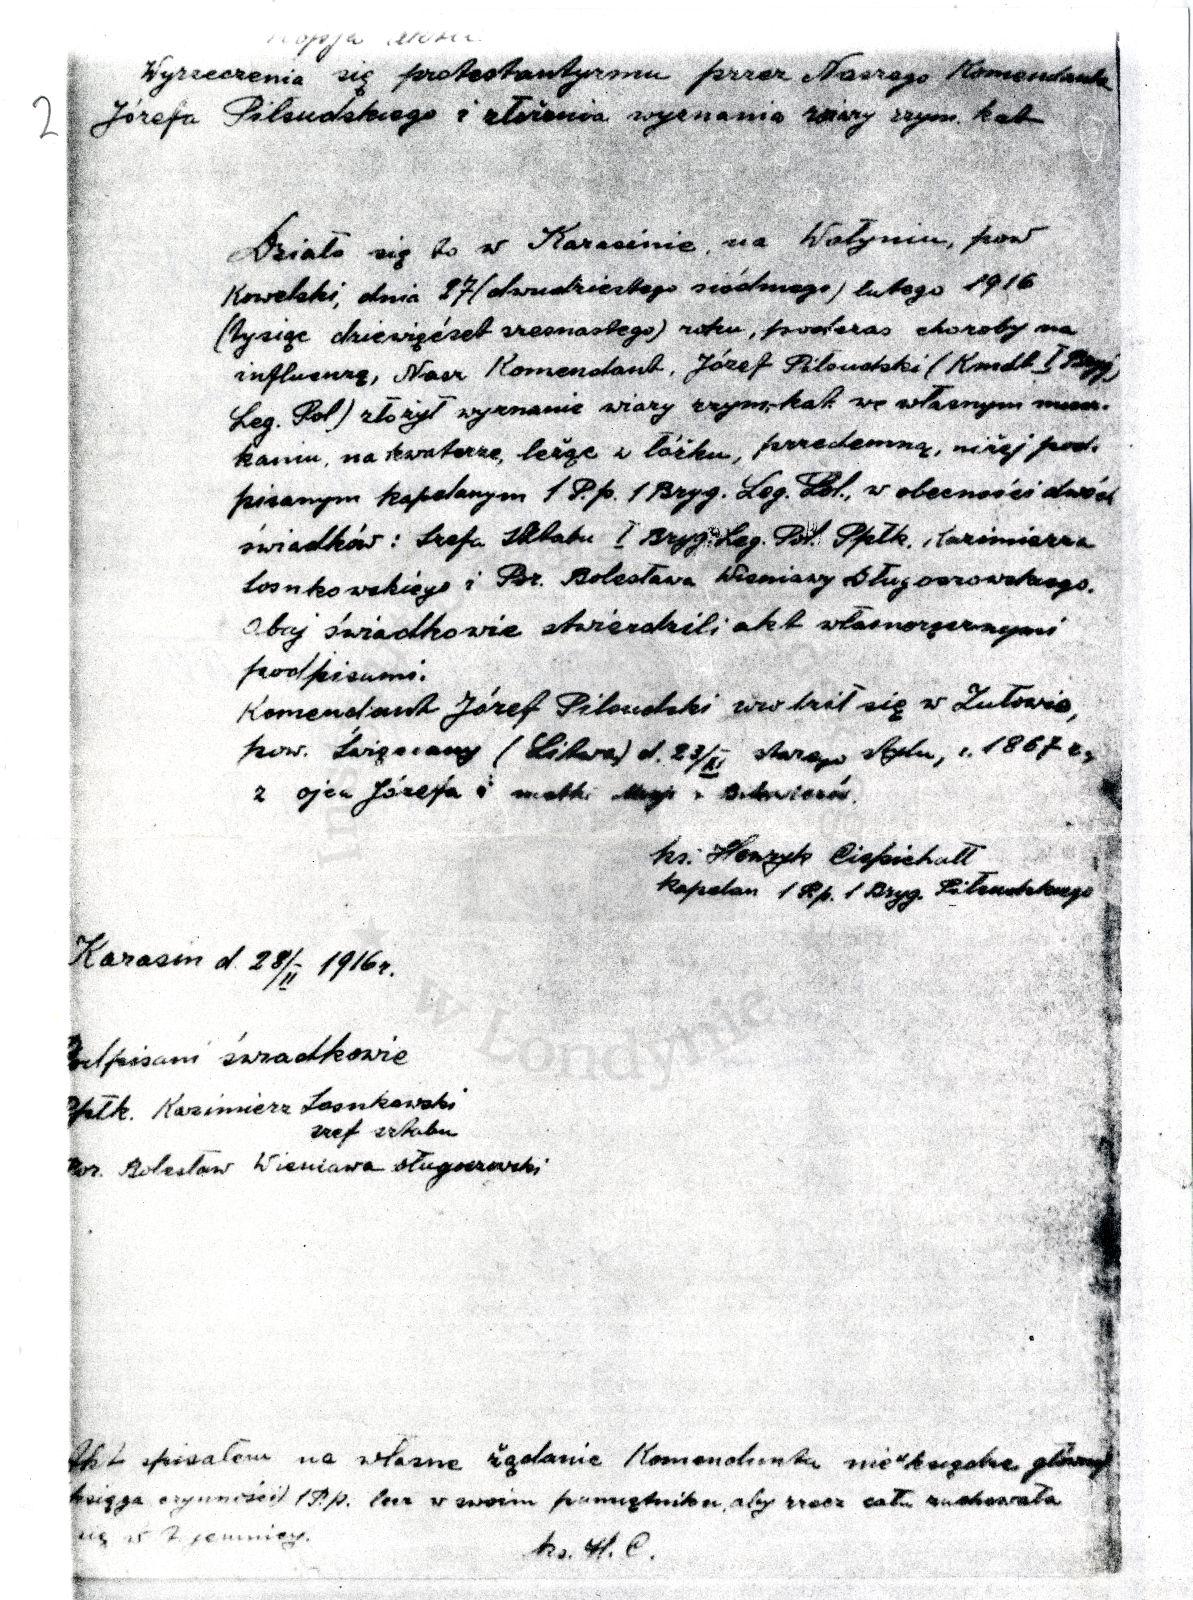 Kopja aktu
Wyrzeczenia się protestantyzmu przez Naszego Komendanta
2
Józefa Piłsudskiego i złożenia wyznania wiary rzym. kat
Działo się to w Karasinie, na Wołyniu, pow
Kowelski, dnia 27 (dwudziestego siódmego) lutego 1916
(tysiąc dziewięćset szesnastego) roku, podczas choroby na
influenzę, Nasz Komendant, Józef Piłsudski (Kmdt I Bryg.
Leg. Pol) złożył wyznanie wiary rzym.-kat. we własnym miesz-
kaniu, na kwaterze, leżąc w łóżku, przedemną, niżej pod-
pisanym kapelanym 1 P.p. 1 Bryg. Leg. Pol., w obecności dwóch
świadków: Szefa Sztabu I Bryg. Leg. Pol. Ppłk. Kazimierza
Sosnkowskiego i Por. Bolesława Wieniawy Długoszowskiego.
Obaj świadkowie stwierdzili akt własnoręcznymi
podpisami.
Komendant Józef Piłsudski urodził się w Zułowie,
pow. Święciany (Litwa) d. 23/XI starego stylu, r. 1867 r.,
z ojca Józefa i matki Maryi z Bilewiczów.
ks. Henryk Ciepichall
kapelan 1 P.p. 1 Bryg. Piłsudskiego
Karasin d. 28/II 1916 r.
Podpisani świadkowie
Ppłk. Kazimierz Sosnkowski
szef sztabu
Por. Bolesław Wieniawa Długoszowski
w Londynie
Akt spisałem na własne żądanie Komendanta nie w księdze głównej
(księga czynności) 1 P.p. lecz w swoim pamiętniku, aby rzecz cała zachowała
się w tajemnicy.
ks. H. C.